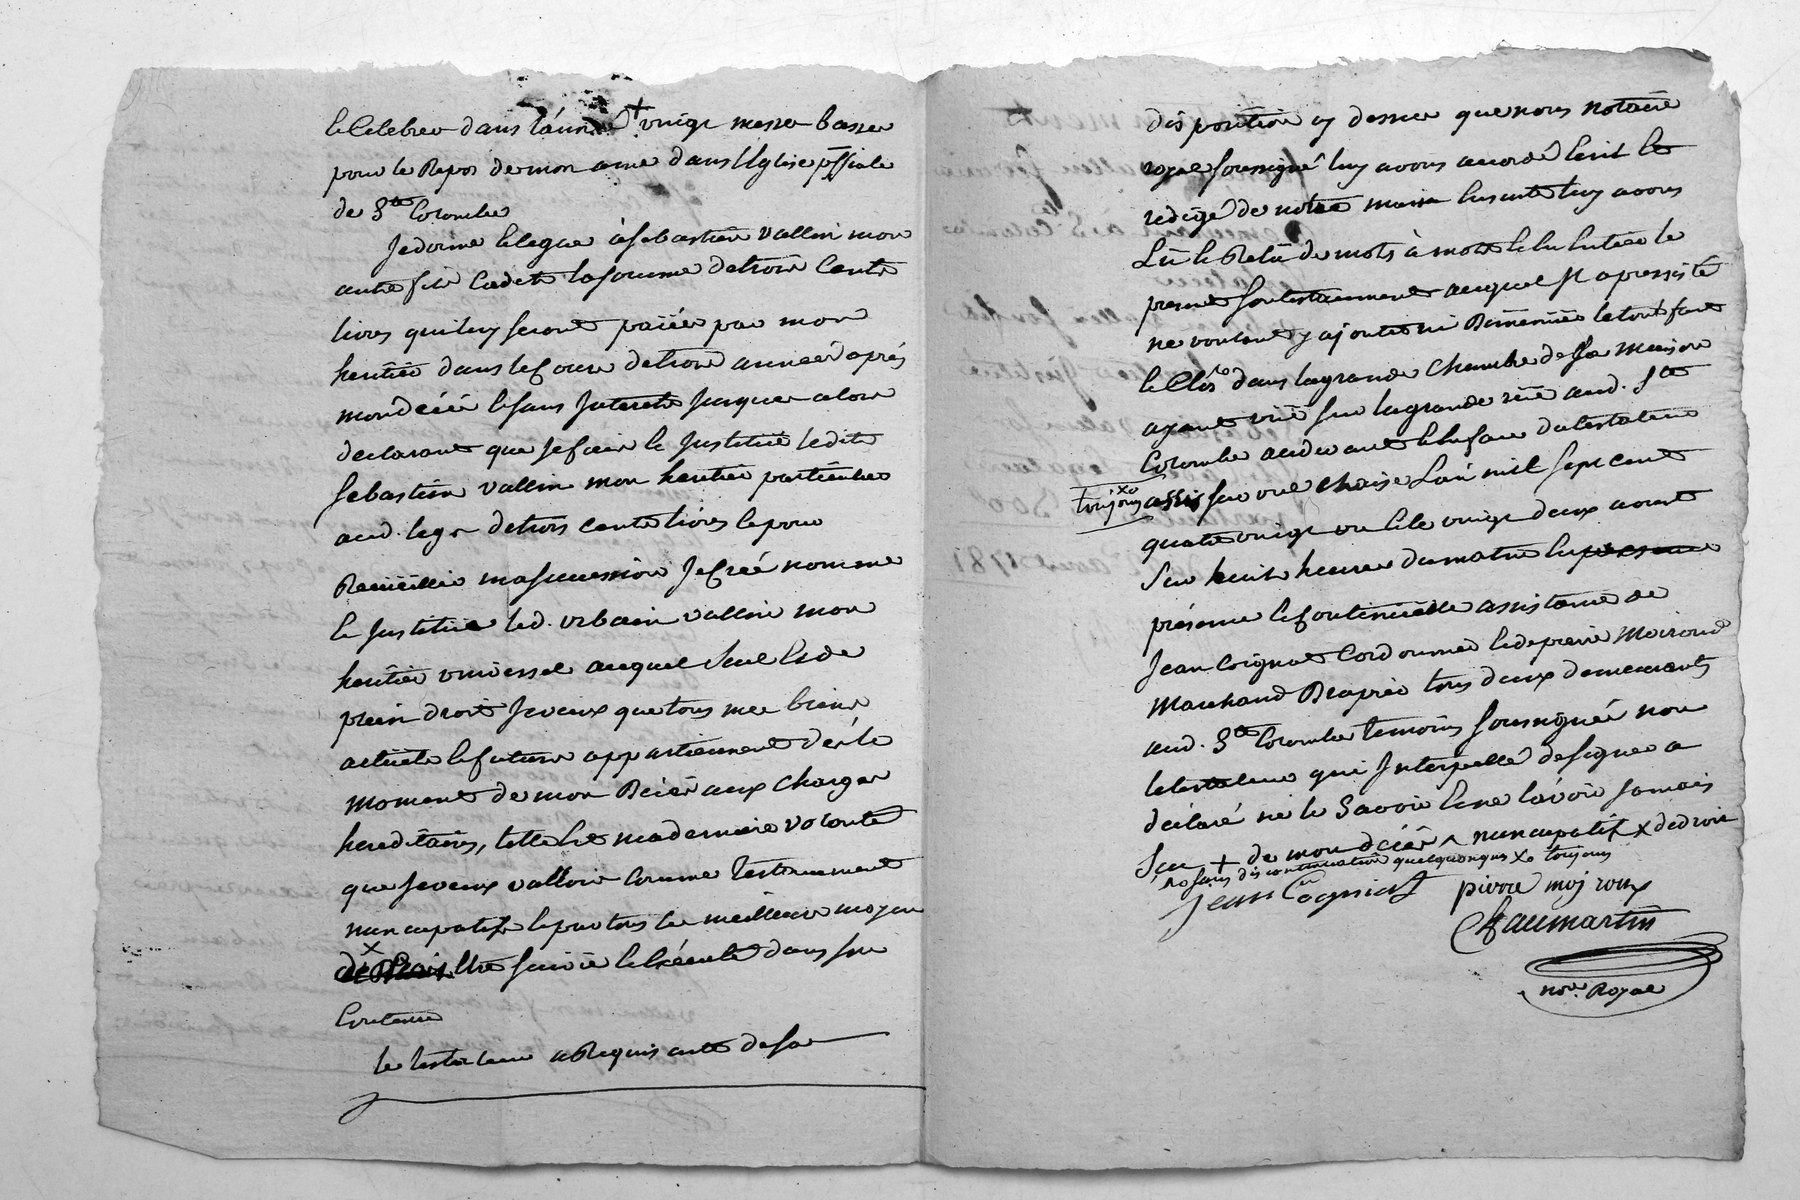 & Celebrer dans l'année + vingt messes basses
pour le Repos de mon ame dans l'Eglise pssiale
de Ste Colombe
Je donne & legue à Sebastien Vallin mon
autre fils Cadet la somme de trois Cents
livres qui luy seront païées par mon
heritier dans le Cours de trois années après
mon décéé & sans Interets jusques alors
declarant que je fais & Institue ledit
Sebastien Vallin mon heritier particulier
aud. legs de trois cents livres & pour
Recüeillir ma succession Je Créé nomme
& Institue led. urbain vallin mon
heritier universel auquel seul & de
plein droit Je veux que tous mes biens
actuels & futurs appartiennent dès le
moment de mon Décèr aux charges
hereditaires, telle est ma derniere volonté
que je veux valloir Comme Testament
nuncupatif & par tous les meilleurs moyens
x
Etre suivie & Exécuté dans son
Contenu
le testateur a Requis acte de sa
disposition cy dessus que nous notaire
royal soussigné luy avons accordé écrit &
redigé de notre main ensuite luy avons
Lû & Relû de mots à mots & lu Entier le
present son testament auquel Il a pressisté
ne voulant y ajouter ni Diminüer le tout fait
& Clos dans la grande Chambre de sa Maison
ayant vüe sur la grande rüe aud. Ste
Colombe au devant le testateur
toujours xo assis sur une chaise L'an mil sept cent
quatre vingt un & le vingt deux aout
Sur huit heures du matin En
présence & Continüelle assistance de
Jean Coignet Cordonnier & de pierre Moiroud
Marchand Drapier tous deux demeurants
aud. Ste Colombe temoins soussignés non
le testateur qui Interpellé de signer a
déclaré ne le Savoir & ne l'avoir Jamais
Sçu + de mon décèr ^ nuncupatif x de droit
xo sans discontinuation quelquonque xo toujours
Jean Cognict pierre moj roux
Chaumartin
nore. Royal